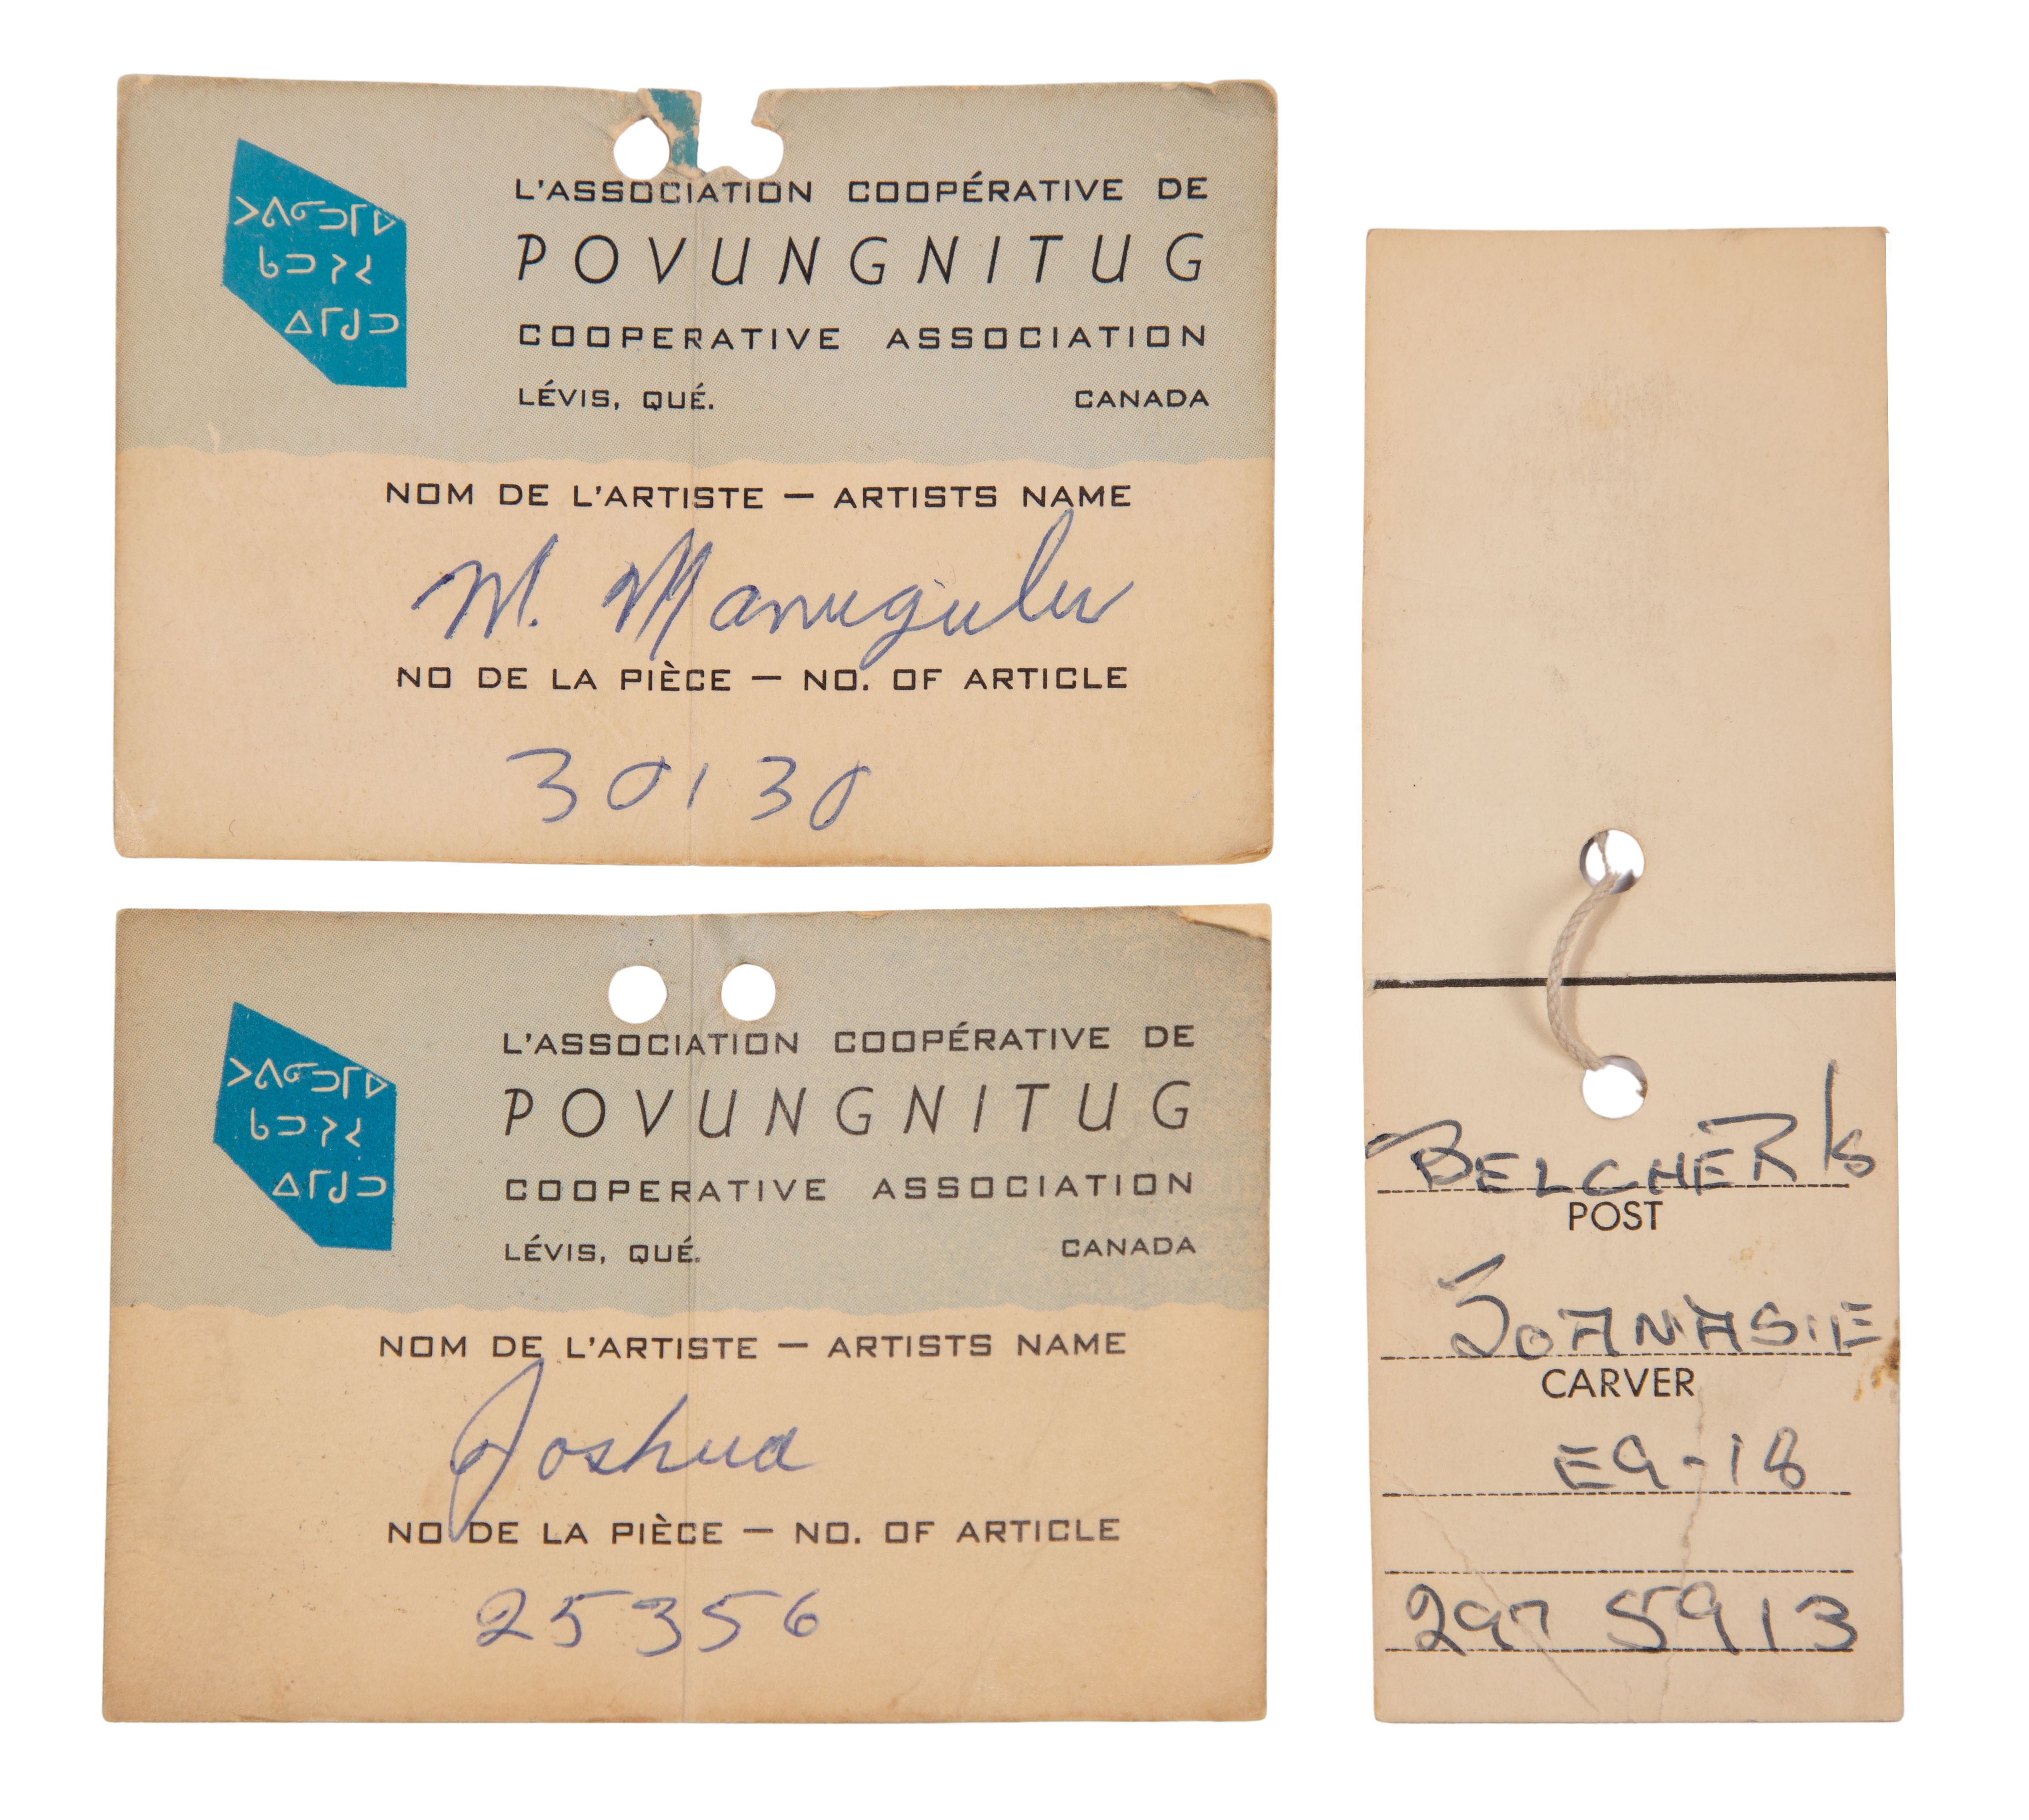 ᐳᕕᕐᓂᑐᒥᐅ
ᑲᑐᔨᔪ
ᐃᒥᒍᑐ
L'ASSOCIATION COOPÉRATIVE DE
POVUNGNITUG
COOPERATIVE ASSOCIATION
LÉVIS, QUÉ. CANADA
NOM DE L'ARTISTE — ARTISTS NAME
M. Manugulu
NO DE LA PIÈCE — NO. OF ARTICLE
30130
L'ASSOCIATION COOPÉRATIVE DE
POVUNGNITUG
COOPERATIVE ASSOCIATION
LÉVIS, QUÉ. CANADA
NOM DE L'ARTISTE — ARTISTS NAME
Joshua
NO DE LA PIÈCE — NO. OF ARTICLE
25356
BELCHER Is
POST
JOANASIE
CARVER
E9-18
297 5913